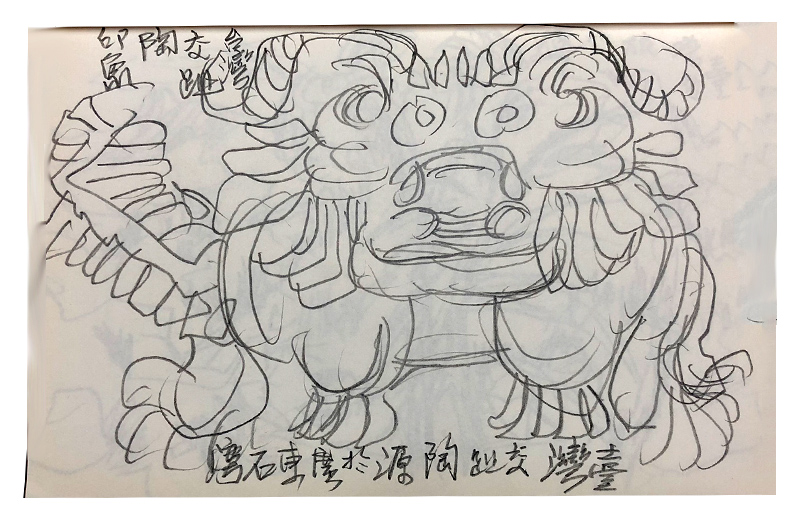 臺灣交趾陶印象
臺灣交趾陶源於廣東石灣